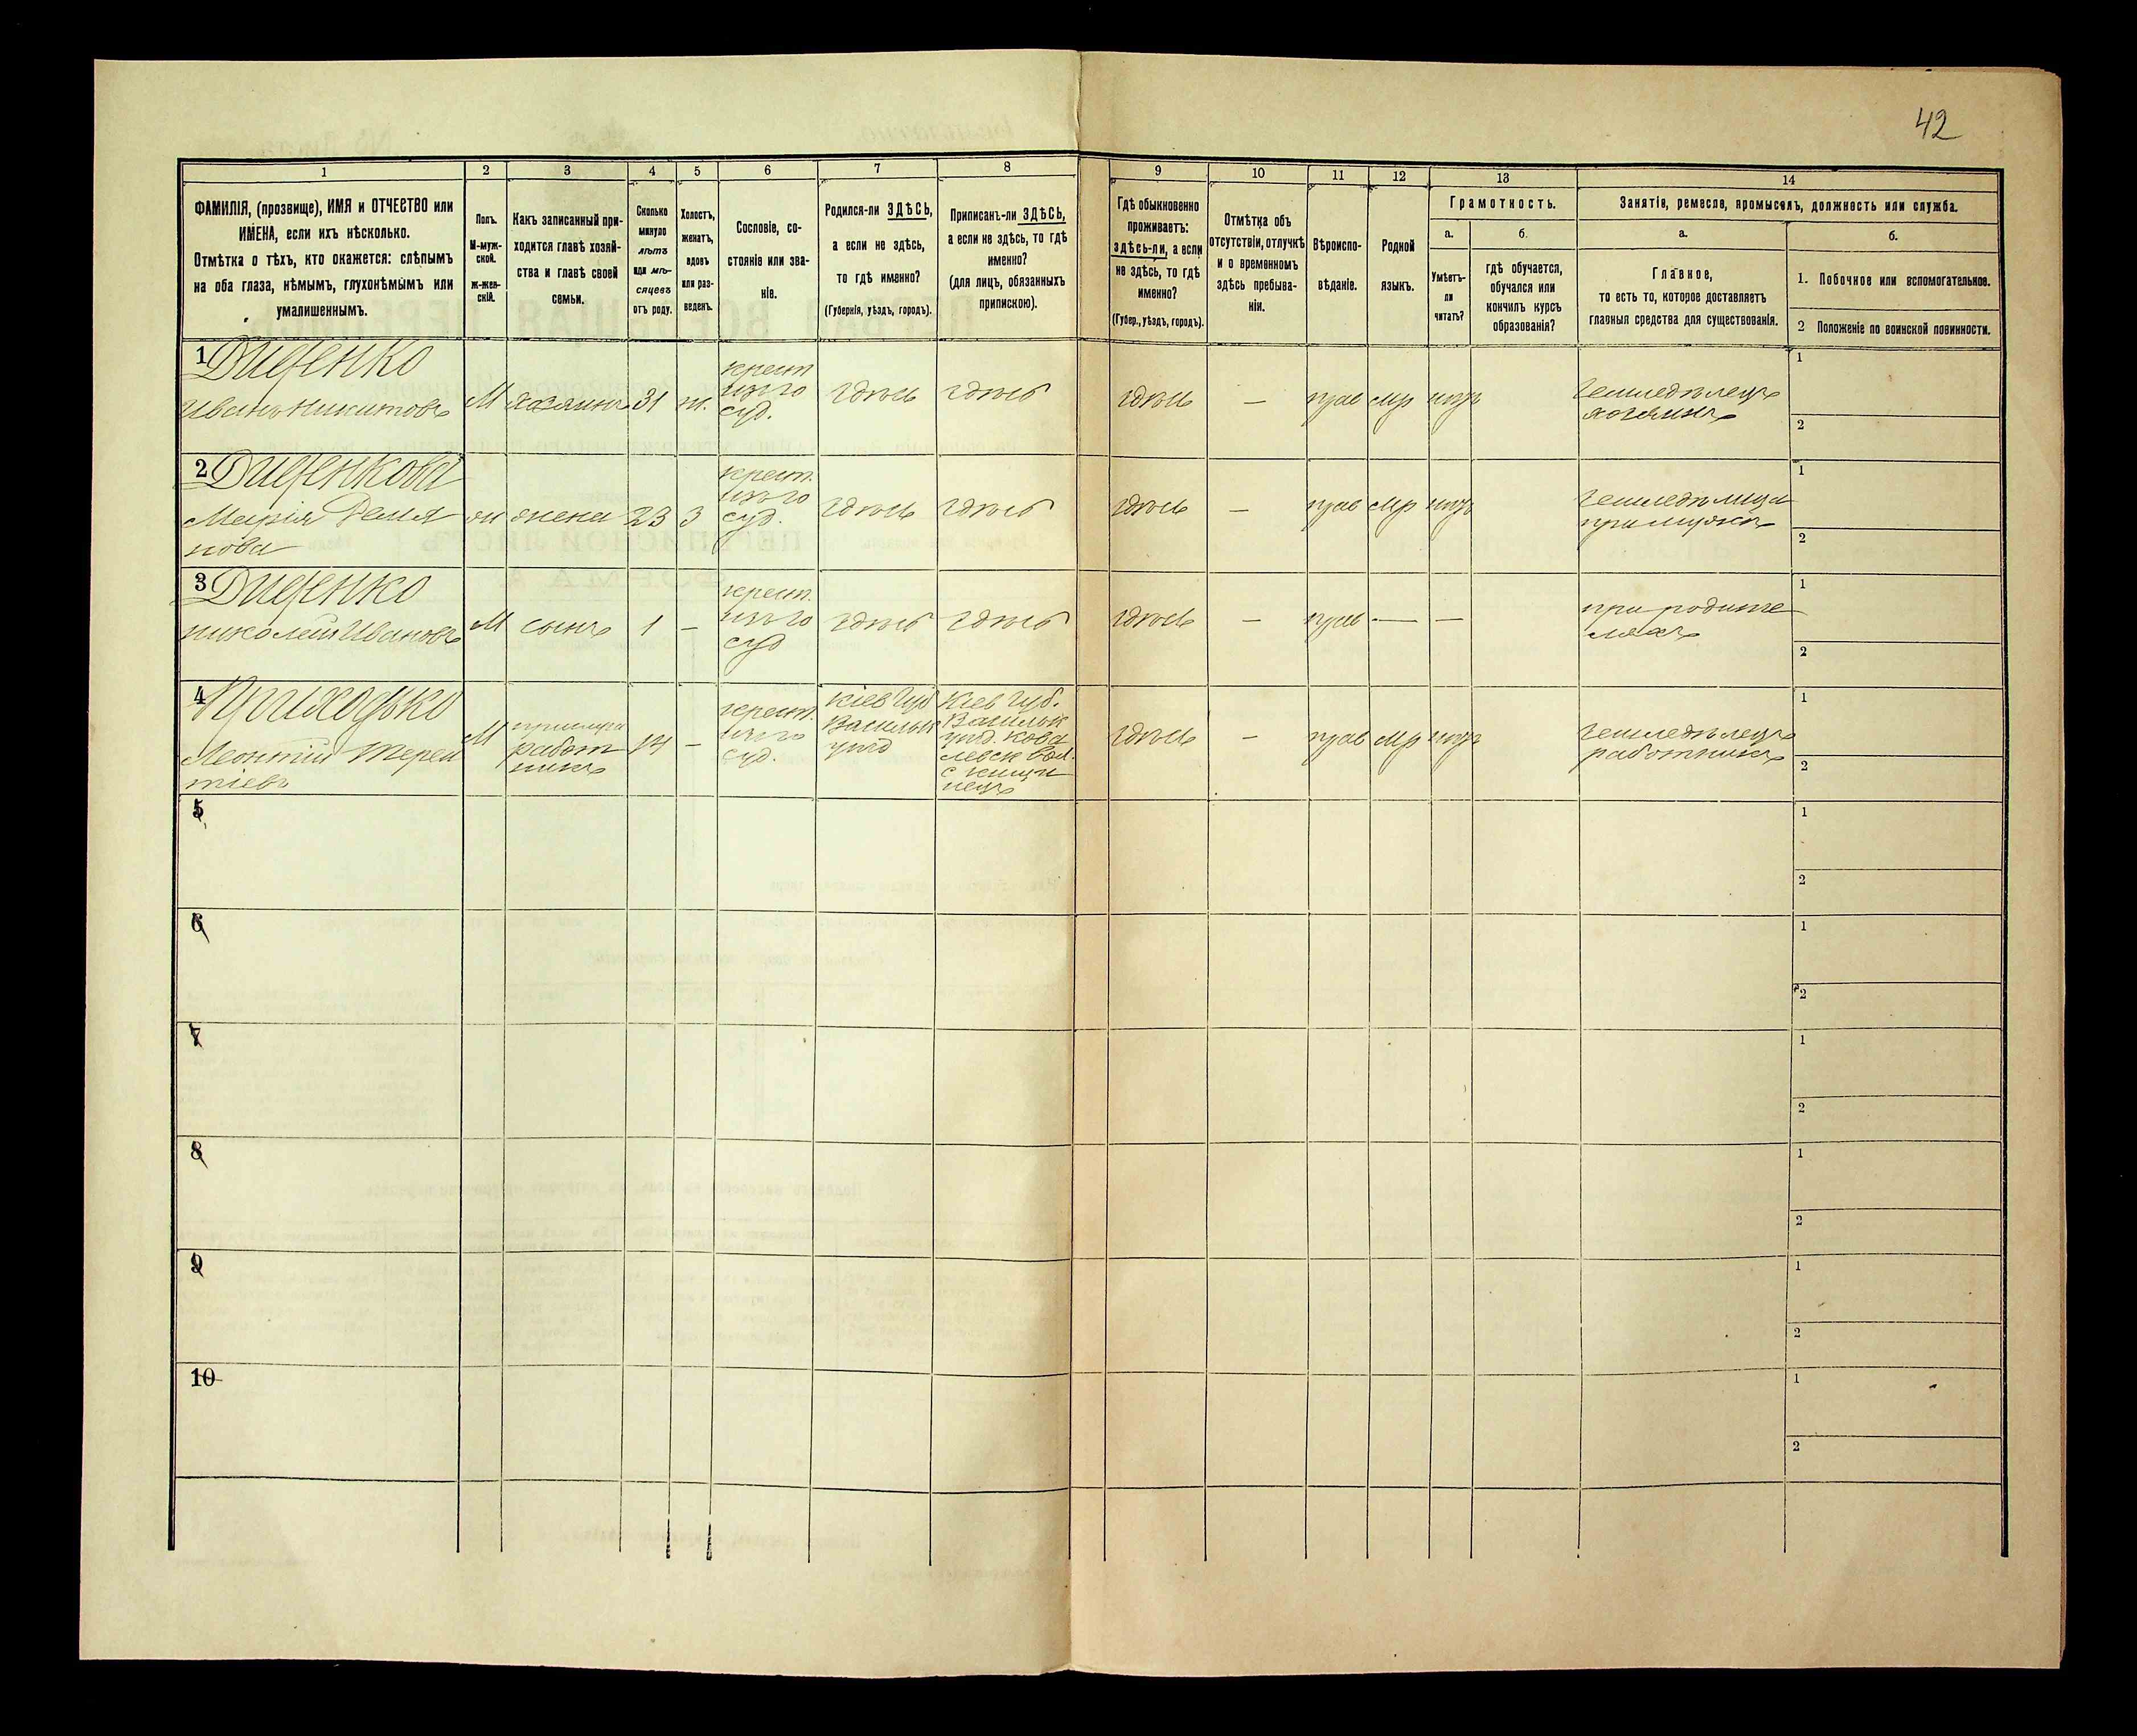 42
1
2
3
4
5
6
7
8
9
10
11
12
13
14
ФАМИЛІЯ, (прозвище), ИМЯ и ОТЧЕСТВО или
ИМЕНА, если ихъ нѣсколько.
Отмѣтка о тѣхъ, кто окажется: слѣпымъ
на оба глаза, нѣмымъ, глухонѣмымъ или
умалишеннымъ.
Полъ.
М-муж-
ской.
ж-жен-
скій.
Какъ записанный при-
ходится главѣ хозяй-
ства и главѣ своей
семьи.
Сколько
минуло
лѣтъ
или мѣ-
сяцевъ
отъ роду.
Холостъ,
женатъ,
вдовъ
или раз-
веденъ.
Сословіе, со-
стояніе или зва-
ніе.
Родился-ли ЗДѢСЬ,
а если не здѣсь,
то гдѣ именно?
(Губернія, уѣздъ, городъ).
Приписанъ-ли ЗДѢСЬ,
а если не здѣсь, то гдѣ
именно?
(для лицъ, обязанныхъ
припискою).
Гдѣ обыкновенно
проживаетъ:
здѣсь-ли, а если
не здѣсь, то гдѣ
именно?
(Губер., уѣздъ, городъ).
Отмѣтка объ
отсутствіи, отлучкѣ
и о временномъ
здѣсь пребыва-
ніи.
Вѣроиспо-
вѣданіе.
Родной
языкъ.
Грамотность.
а.
Умѣетъ-
ли
читать?
б.
гдѣ обучается,
обучался или
кончилъ курсъ
образованія?
Занятіе, ремесло, промыселъ, должность или служба.
а.
Главное,
то есть то, которое доставляетъ
главныя средства для существованія.
б.
1. Побочное или вспомогательное.
2 Положеніе по воинской повинности.
1 Диденко
Иванъ Никитовъ
М
хозяинъ
31
ж.
крест
изъ го
суд.
здѣсь
здѣсь
здѣсь
—
прав
мр
нѣтъ
земледѣлецъ
хозяинъ
1
2
2 Диденкова
Марія Демя
нова
ж
жена
23
З
крест.
изъ го
суд.
здѣсь
здѣсь
здѣсь
—
прав
мр
нѣтъ
земледѣлица
при мужѣ
1
2
3 Диденко
николай Ивановъ
М
сынъ
1
—
крест.
изъ го
суд
здѣсь
здѣсь
здѣсь
—
прав
—
—
при родите
ляхъ
1
2
4 Приходько
Леонтій Терен
тіевъ
М
работ
никъ
14
—
крест.
изъ го
суд.
Кіев Губ
Васильк
уѣзд
Кіев Губ.
Васильк
уѣзд. Кова
левск вол.
здѣсь
—
прав
мр
нѣтъ
земледѣлецъ
работникъ
1
2
5
1
2
6
1
2
7
1
2
8
1
2
9
1
2
10
1
2